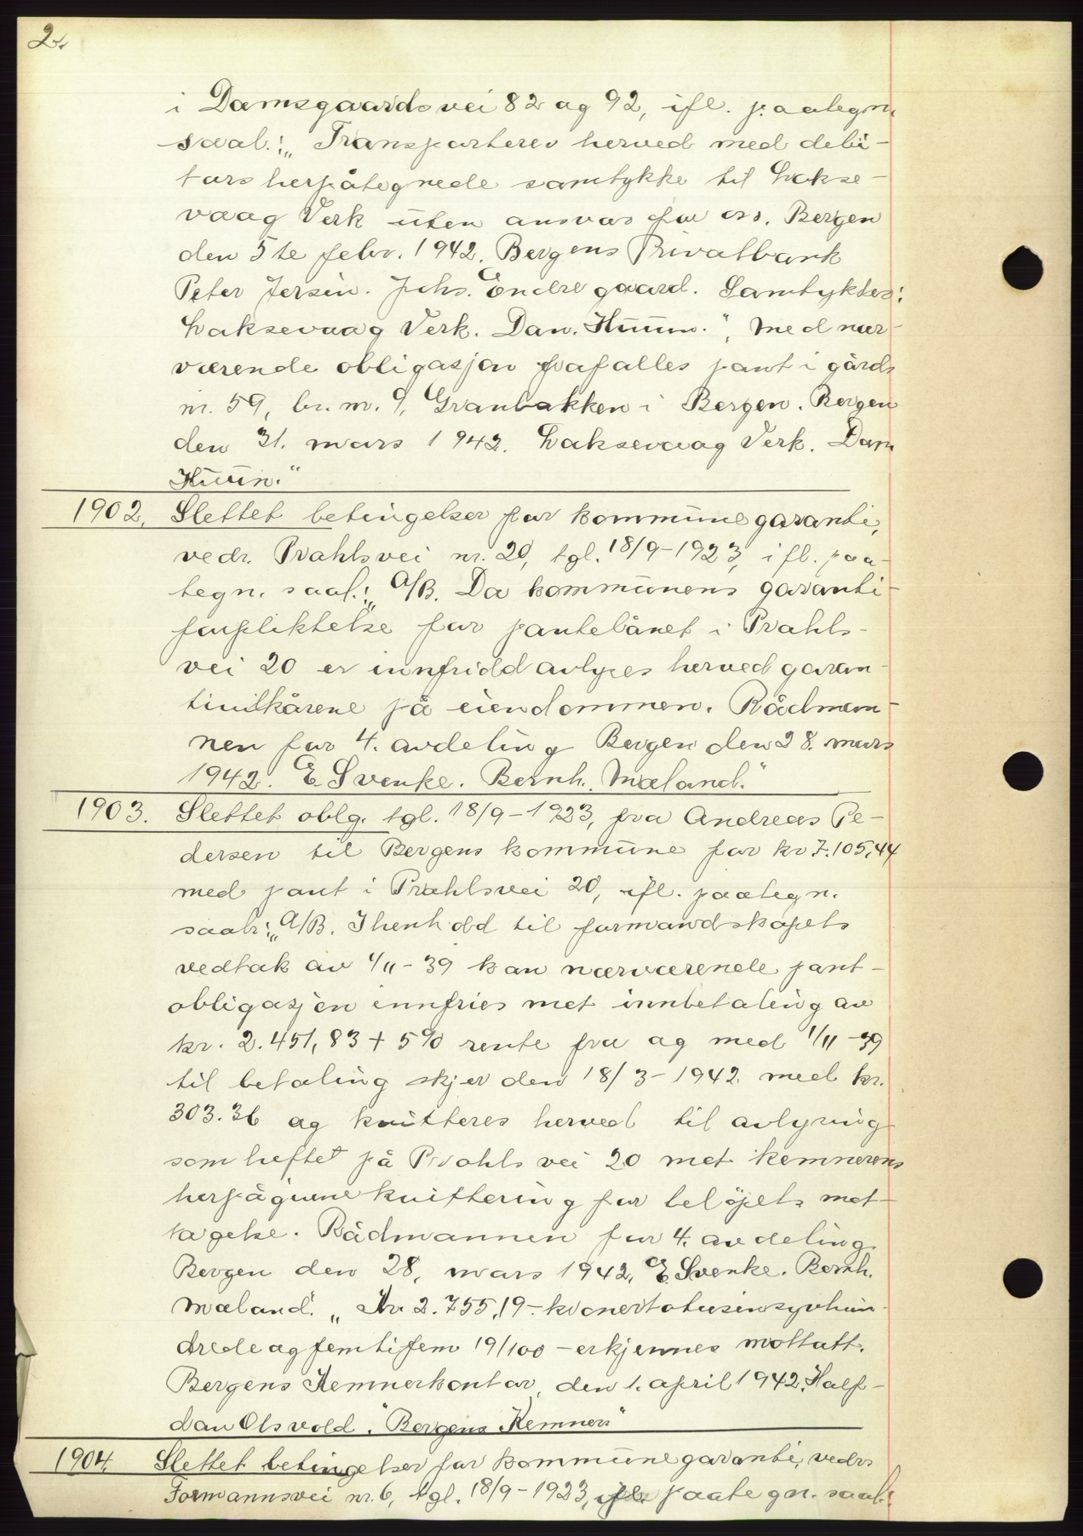 2.
i Damsgaardsvei 82 og 92, ifl. paategn.
saal.: „Transporteres herved med debi-
tors herpåtegnede samtykke til Lakse-
vaag Verk uten ansvar for oss. Bergen
den 5te febr. 1942. Bergens Privatbank
Peter Jersin. Johs. Endregaard. Samtykkes:
Laksevaag Verk. Dan. Huun.", Med nær-
værende obligasjon frafalles pant i gårds
nr. 59, br. nr. 9, Granbakken i Bergen. Bergen
den 31. mars 1942. Laksevaag Verk. Dan
Huun."
1902. Slettet betingelser for kommunegaranti,
vedr. Prahlsvei nr. 20, tgl. 18/9-1923, ifl. paa-
tegn. saal.: „A/B. Da kommunens garanti-
forpliktelse for pantelånet i Prahls-
vei 20 er innfridd avlyses herved garan-
tivilkårene på eiendommen. Rådman-
nen for 4. avdeling Bergen den 28. mars
1942. E Svenke. Bernh. Mæland."
1903. Slettet oblg. tgl. 18/9-1923, fra Andreas Pe-
dersen til Bergens kommune for kr 7.105,44
med pant i Prahlsvei 20, ifl. paategn.
saal.: „A/B. I henhold til formandskapets
vedtak av 1/11-39 kan nærværende pant-
obligasjon innfries met innbetaling av
kr. 2.451,83 + 5% rente fra og med 1/11-39
til betaling skjer den 18/3-1942 med kr.
303.36 og kvitteres herved til avlysning
som heftet på Prahlsvei 20 met kemnerens
herpågivne kvittering for beløpets mot-
tagelse. Rådmannen for 4. avdeling
Bergen den 28, mars 1942, E Svenke. Bernh.
Mæland." „Kr 2.755,19 - kronertotusensyvhun-
dredeogfemtifem 19/100 - erkjennes mottatt.
Bergens Kemnerkontor, den 1. april 1942. Half-
dan Olsvold. "Bergens Kemner"
1904. Slettet betingelser for kommunegaranti, vedr.
Formannsvei nr. 6, tgl. 18/9-1923, ifl. paategn. saal.: